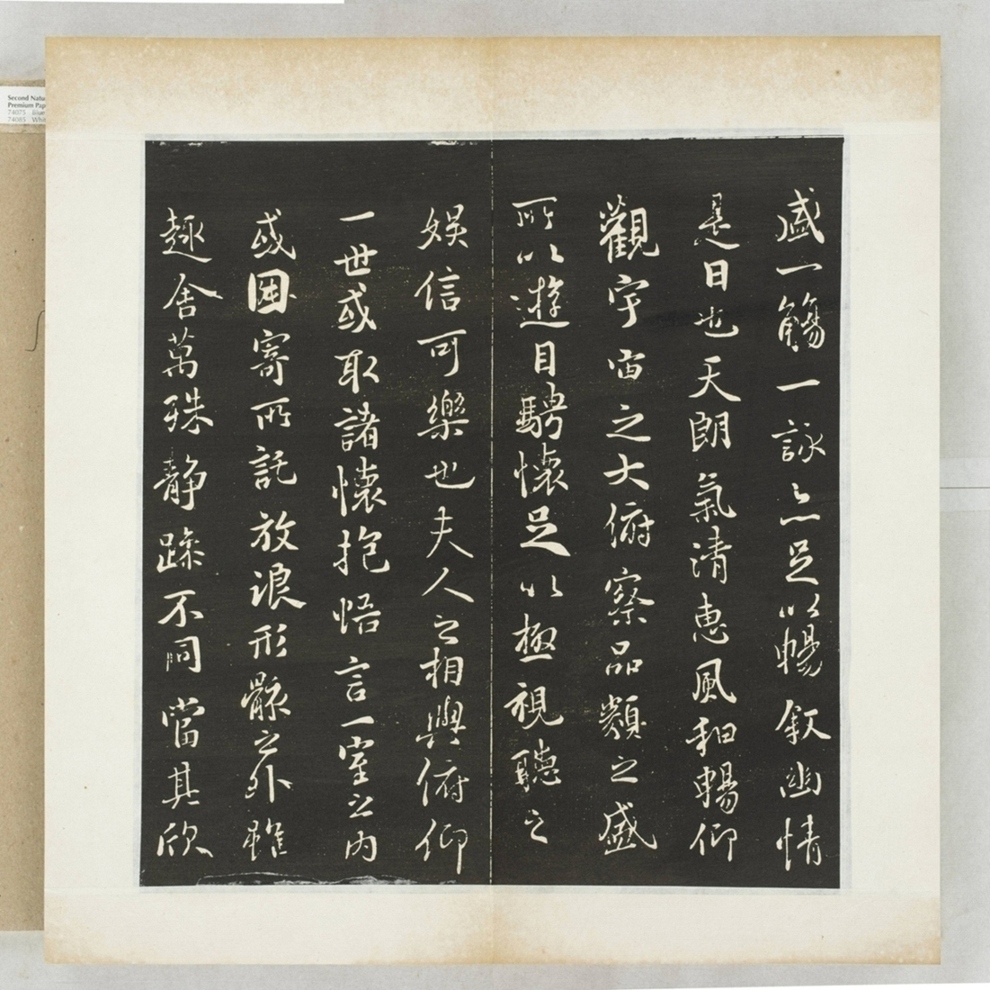 盛一觴一詠亦足以暢叙幽情
是日也天朗氣清惠風和暢仰
觀宇宙之大俯察品類之盛
所以遊目騁懷足以極視聽之
娛信可樂也夫人之相與俯仰
一世或取諸懷抱悟言一室之內
或因寄所託放浪形骸之外雖
趣舍萬殊静躁不同當其欣
Second Natu
Premium Pap
74075
74085 Whi